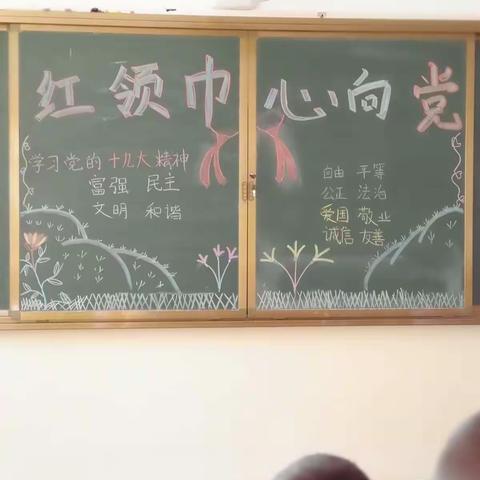 红领巾心向党
学习党的十九大精神
富强 民主
文明 和谐
自由 平等
公正 法治
爱国 敬业
诚信 友善